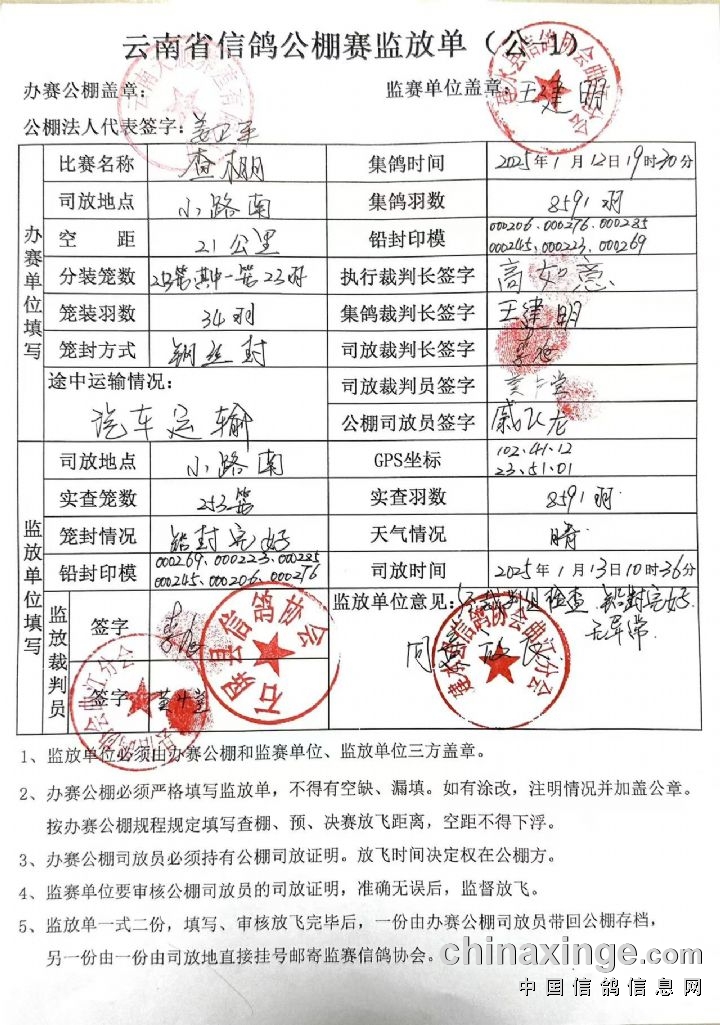 云南省信鸽公棚赛监放单（公-1）
办赛公棚盖章：
监赛单位盖章：王建明
公棚法人代表签字：姜卫军
办赛单位填写
比赛名称 查棚 集鸽时间 2025年1月12日19时30分
司放地点 小路南 集鸽羽数 8591羽
空距 21公里 铅封印模 000206.000276.000285
000245.000223.000269
分装笼数 253笼其中一笼23羽 执行裁判长签字 高如意
笼装羽数 34羽 集鸽裁判长签字 王建明
笼封方式 钢丝封 司放裁判长签字
途中运输情况： 司放裁判员签字
汽车运输 公棚司放员签字 戚飞龙
监放单位填写
司放地点 小路南 GPS坐标 102.41.12
23.51.01
实查笼数 253笼 实查羽数 8591羽
笼封情况 铅封完好 天气情况 晴
铅封印模 000269、000223、000285
000245、000206、000276
司放时间 2025年1月13日10时36分
监放裁判员
签字
签字
监放单位意见：经裁判组检查 铅封完好
无异常
同意放飞
石屏县信鸽协会
建水县信鸽协会曲江分会
建水县信鸽协会曲江分会
1、监放单位必须由办赛公棚和监赛单位、监放单位三方盖章。
2、办赛公棚必须严格填写监放单，不得有空缺、漏填。如有涂改，注明情况并加盖公章。
按办赛公棚规程规定填写查棚、预、决赛放飞距离，空距不得下浮。
3、办赛公棚司放员必须持有公棚司放证明。放飞时间决定权在公棚方。
4、监赛单位要审核公棚司放员的司放证明，准确无误后，监督放飞。
5、监放单一式二份，填写、审核放飞完毕后，一份由办赛公棚司放员带回公棚存档，
另一份由一份由司放地直接挂号邮寄监赛信鸽协会。
chinaxinge.com
中国信鸽信息网